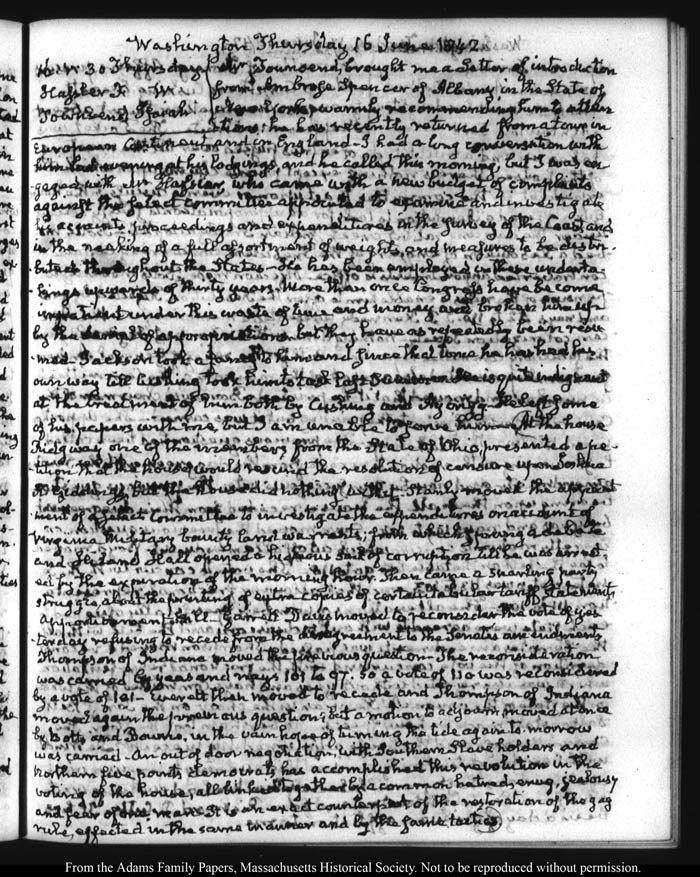 Washington Thursday 16 June 1842
Thursday Mr Townsend, brought me a Letter of introduction
Hassler F. from Ambrose Spencer of Albany in the State of
Townsend Isaiah New York, warmly recommending him to atten
tion: he has recently returned from a tour in
European Continent and in England—I had a long conversation with
him last evening at his lodgings, and he called this morning, but I was en
gaged with Mr Hassler, who came with a new budget of complaints
against the select committee appointed to examine and investigate
accounts, proceedings and expenditures in the survey of the Coast, and
in the making of a full assortment of weights, and measures to be distri-
buted throughout the States—He has been employed in these underta-
kings upwards of thirty years. More than once Congress have become
impatient under this waste of time and money and broken him up
by the denial of appropriations—but they have as repeatedly been resu
med. Jackson took a fancy to him and since that time he has had his
own way till Cushing took him to task last He is quite indignant
at the treatment of him both by Cushing and He left some
of his papers with me, but I am unable to him—At the house
Ridgway one of the members from the State of Ohio, presented a pe-
tition that the house would rescind the resolution of censure upon Joshua
R. Giddings, but the House did nothing with it—Stanly moved the appoint
ment of a select Committee to investigate the expenditures on account of
Virginia Military bounty land warrants, from which sprung a debate
and Hall opened a hideous sink of corruption till he was arrest
ed by the expiration of the morning hour. Then came a snarling party
struggle about the printing of extra copies of certain tabular tariff statements
Apportionment bill—Garrett Davis moved to reconsider the vote of yes
terday refusing to recede from the disagreement to the Senates amendments
Thompson of Indiana moved the previous question—The reconsideration
was carried by yeas and nays 101 to 97. So a vote of 110 was reconsidered
by a vote of 101—Everett then moved to recede and Thompson of Indiana
moved again the previous question; but a motion to adjourn moved at once
by Botts and Bowne, in the vain hope of turning the tide again to-morrow
was carried—An out of door negotiation, with Southern Slave holders and
northern five points democrats has accomplished this revolution in the
voting of the house, all linked together by a common hatred, envy, jealousy
and fear of one man—It is an exact counterpart of the restoration of the gag
rule, effected in the same manner and by the same tactics
From the Adams Family Papers, Massachusetts Historical Society. Not to be reproduced without permission.